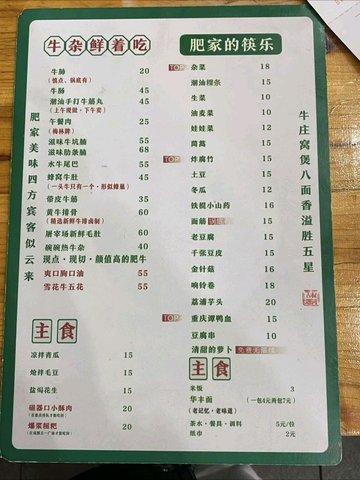 牛杂鲜着吃
牛肺 20
(慎点、锅底有)
牛肠 45
潮汕手打牛筋丸 45
(上午现做,下午卖)
午餐肉 25
(梅林牌)
滋味牛坑腩 55
滋味肋条腩 68
水牛尾巴 55
蜂窝牛肚 45
(一头牛只有一个,形似蜂巢)
带皮牛筋 35
黄牛排骨 60
(精选新鲜牛排卤制)
屠宰场新鲜毛肚 60
碗碗热牛杂 40
现点·现切·颜值高的肥牛
爽口胸口油 55
雪花牛五花 55
肥家美味四方宾客似云来
主食
凉拌青瓜 15
炝拌毛豆 15
盐焗花生 15
磁器口小酥肉 20
爆浆糍粑 20
肥家的筷乐
TOP 杂菜 18
潮汕粿条 15
生菜 10
油麦菜 10
娃娃菜 12
茼蒿 15
TOP 炸腐竹 15
土豆 15
冬瓜 12
铁棍小山药 16
面筋 15
老豆腐 15
千张豆皮 15
金针菇 16
响铃卷 18
荔浦芋头 20
TOP 重庆谭鸭血 15
豆腐串 10
清甜的萝卜
主食
米饭 3
华丰面 (一包4元两包7元)
(老记忆·老味道)
茶水·餐具·调料 5元/位
纸巾 2元
牛庄窝煲八面香溢胜五星